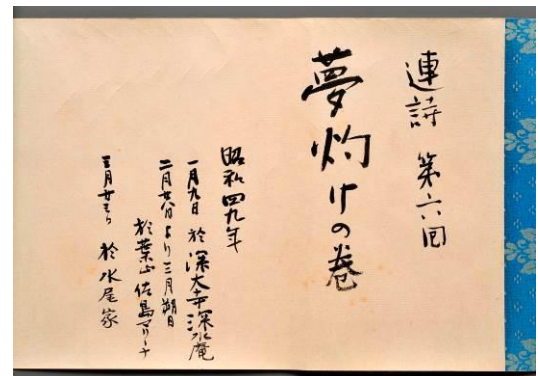 連詩 第六回
夢灼けの巻
昭和四九年
一月九日 於 深大寺深水庵
二月廿八日より三月朔日
於葉山佐島マリーナ
三月廿 於 水尾家